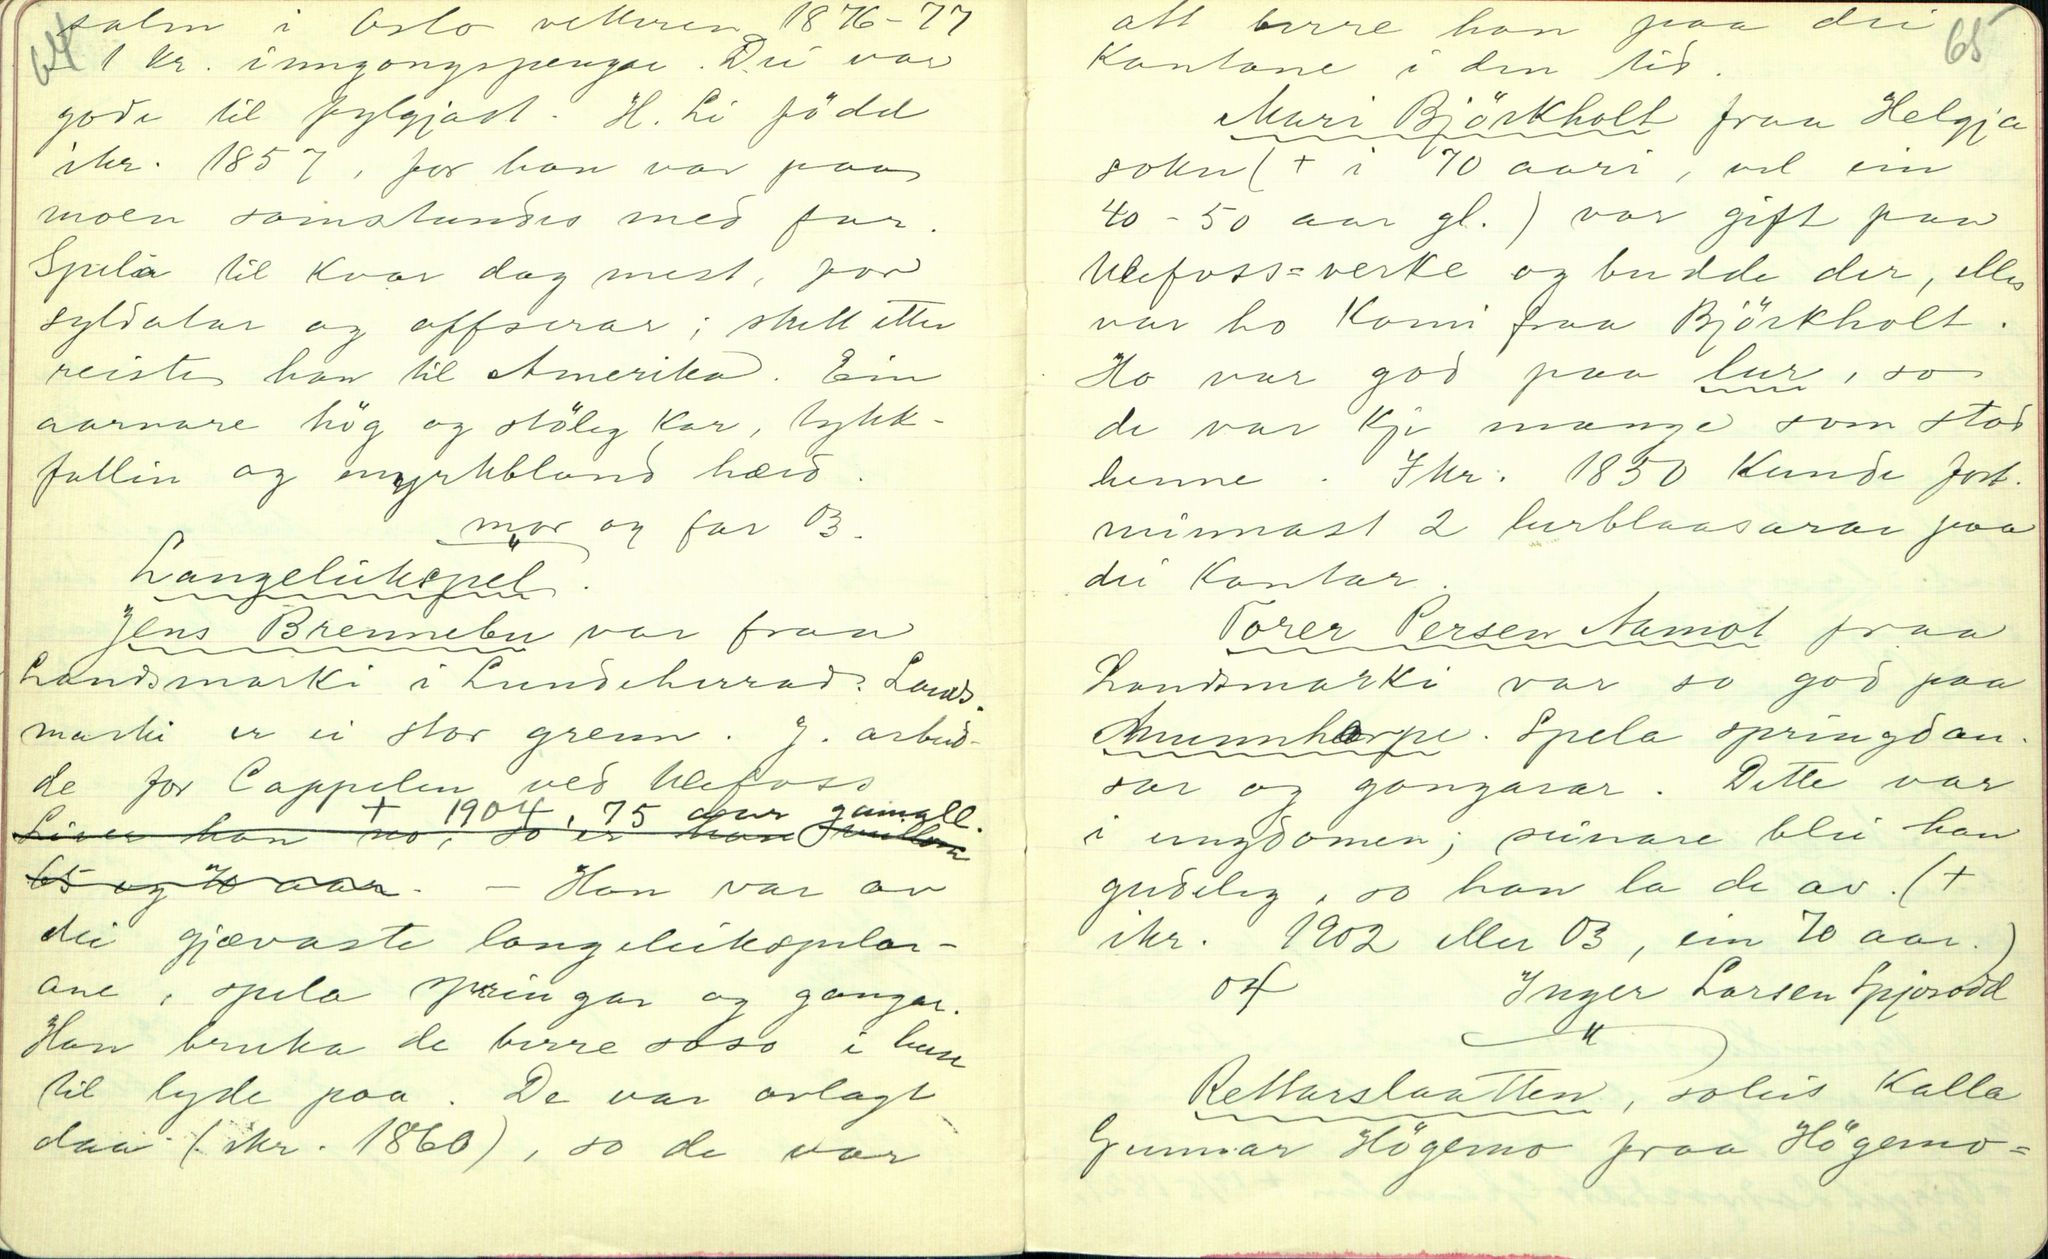 64
salen i Oslo vetteren 1876-77
1 kr. inngongspengar. Dei var
gode til fylgjast. H. Li född
ikr. 1857, for han var paa
moen samstundes med far.
Spela til kvar dag mest, for
syldatar og offserar; strakt etter
reiste han til Amerika. Ein
aarvare hög og stöleg kar, tykk-
fallin og myrkbland hæid.
mor og far 03.
Langeleikspel.
Jens Brennebu var fraa
Landsmarki i Lundeherrad. Lands-
marki er ei stor grenn. J. arbeid-
de for Cappelen ved Ulefoss
+ 1904, 75 aar gamall.
Liver han no, so er han millom
65 og 70 aar. - Han var av
dei gjævaste langeleikspelar-
ane, spela springar og gangar.
Han bruka de berre soso i huse
til lyde paa. De var avlagt
daa (ikr. 1860), so de var
65
att berre han paa dei
kantane i den tid.
Mari Björkholt fraa Helgja
sokn (+ i 70 aari, vel ein
40-50 aar gl.) var gift paa
Ulefoss=verke og budde der, elles
var ho komi fraa Björkholt.
Ho var god paa lur, so
de var kje mange som stod
henne. Ikr. 1850 kunde fort.
minnast 2 lurblaasarar paa
dei kantar.
Torer Persen Namot fraa
Landsmarki var so god paa
Munnharpe. Spela springdan-
sar og gangarar. Dette var
i ungdomen; seinare blei han
gudeleg, so han la de av. (+
ikr. 1902 eller 03, ein 70 aar.)
04 Inger Larsen Spjosodd
Rettarslaatten, soleis kalla
Gunnar Högemo fraa Högemo=